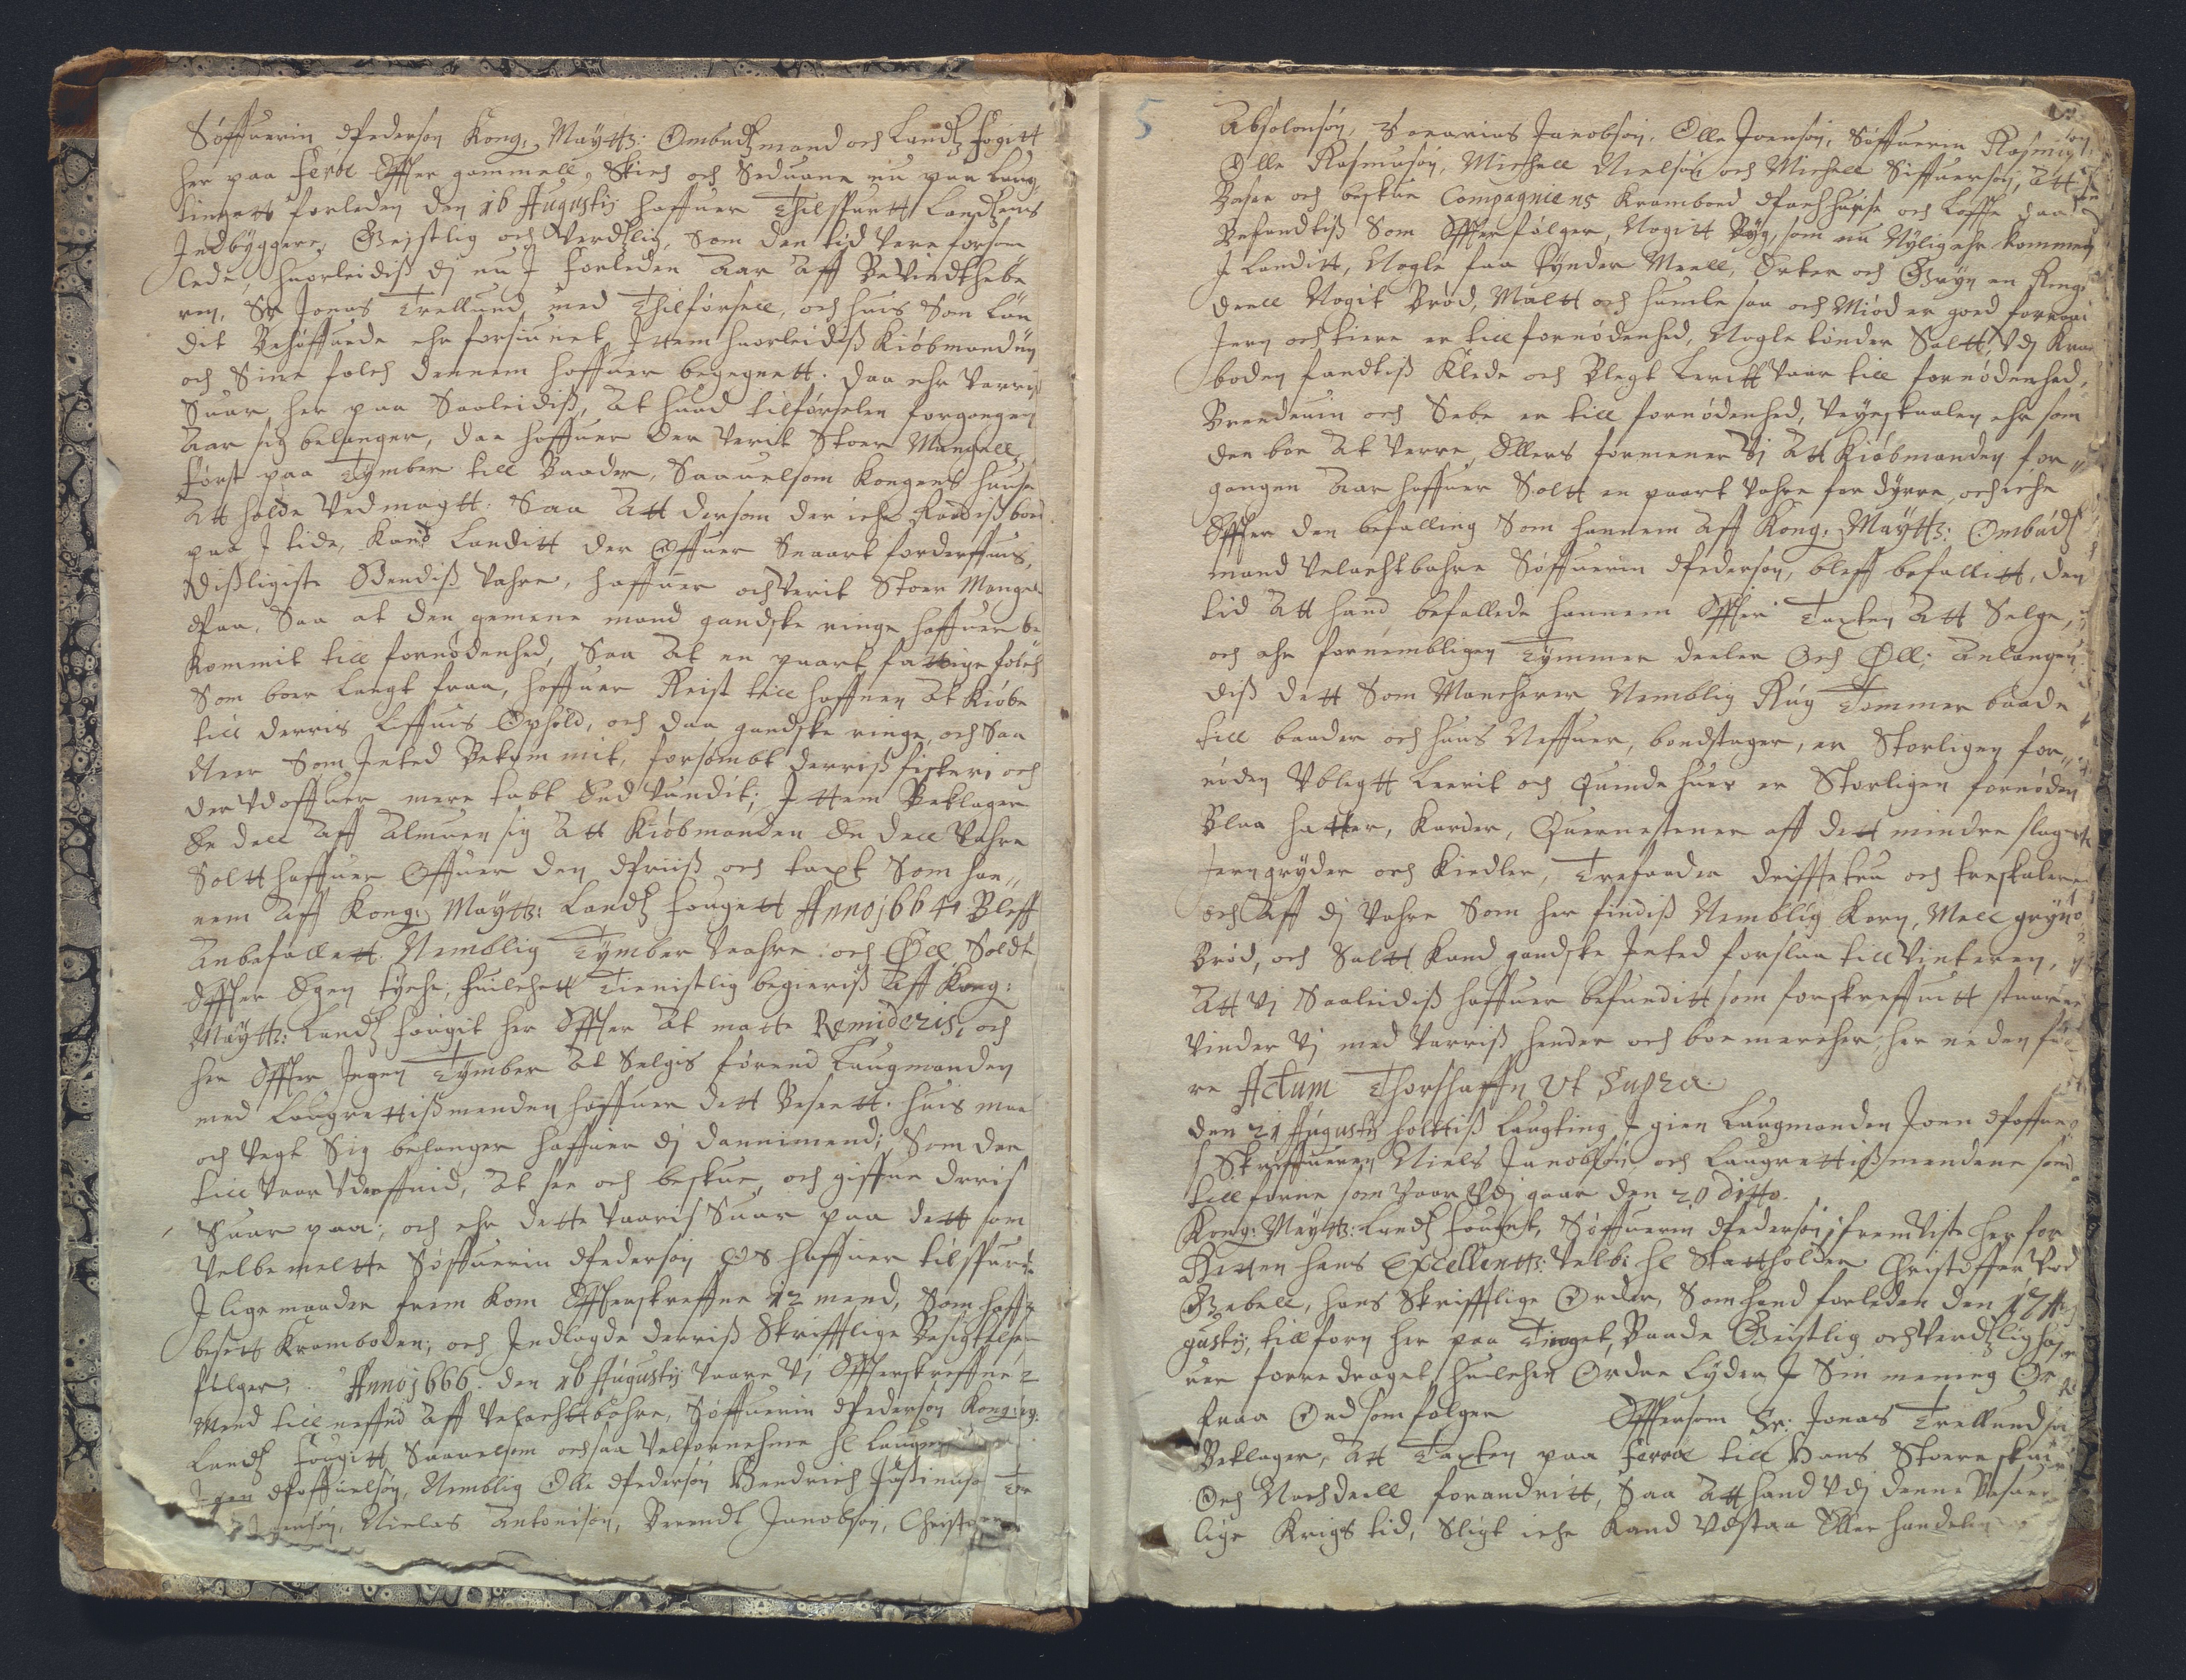 Søffuerin Pederson Kong: Maytts: Ombudtzmand och Landtz fogitt
her paa Feröe Effter gammell Skich och Seduane nu paa Laug
tingett forleden den 16 Augustij haffuer Thilspurtt Landtzens
Indbyggere, Geistlig och Verdtzlig, Som den tid Vare forsam
lede, huorleidiß dj nu J forleden Aar Aff Bevindthebe
ren, Sr Jonas Trellund med Thilførsell, och huis Som Lan
dit Behøffuede ehr forsiunet, Jttem huorleidiß Kiøbmanden
och Sine folch dennem haffuer begegnett. Daa ehr Varris
Suar her paa Saaleidiß, At huad tilførselen forgangen
Aar sig belanger, daa haffuer Der Verit Stoer Mangell,
først paa Tymber till Baader, Saauelsom Kongens huuse
Att holde Ved magtt. Saa Att dersom der iche Raadiß bod
paa J tide, Kand Landitt der Offuer Snaart forderffuis,
Dißligiste Vahre, haffuer och Verit Stoer Mangel
Paa, Saa at den gemene mand gandske ringe haffuer be
kommit till fornødenhed, Saa At en paart fattige folch
Som boer langt fraa, haffuer Reist till haffnen At Kiøbe
till derris Liffuis Ophold, och daa gandske ringe, och Saa
Neer Som Jnted Bekommit, forsømbt derriß fiskeri och
der Vdoffuer mere tabt End Vundit; Jttem Beklager
En deell Aff Almuen sig Att Kiøbmanden En deell Vahre
Soltt haffuer Offuer den Priiß och taxt Som han,,
nem Aff Kong: Maytts: Landtz fougett Anno 1664 Bleff
Anbefallett. Nemblig Tymber Vahre: och Øll, Soldt
Effter Egen tyche, huilchett Tienistlig begieriß Aff Kong:
Maytts: Landtz fougit her Effter At matte Remideris, och
her Effter Ingen Tymber At Selgis førend Laugmanden
med Laugrettißmenden haffuer dett Beseett. huis maal
och Vegt Sig belanger haffuer dj Dannimend; Som der
till Vaar Vdneffnid, At see och beskue, och giffue deris
Suar paa; och ehr dette Vaaris Suar paa dett som
Velbemeltte Søffuerin Pederson Os haffuer tilspurdt
J lige maader frem kom Effterskreffne 12 mend, Som haffr
besett Kramboden; och Indlagde derriß Skrifftlige Besigtelse
følger; Anno 1666. den 16 Augustij Vaare Vj Effterskreffne 12
Mend till neffnd Aff Velachtbahre, Søffuerin Pederson Kong:
Landtz fougitt Saauelsom ochsaa Velfornehme hl Laugm
Poffuelsøn, Nemblig Olle Pedersøn Hendrich Justinusø
Nielas Antonisøn, Berendt Jacobsøn, Christ
5
Absolonsøn, Zacarias Jacobsøn. Olle Joensøn, Søffuerin Rasmuß
Olle Rasmusøn, Michell Nielsøn och Michell Siffuersøn, Att
Besee och beskue Compagniens Kramboed Pachhuuse och Løffte daa
Befandtiß Som Effterfølger, Nogitt Byg, som nu Nylig ehr kommen
J Landitt, Nogle faa tynder Meell, Erter och Gryn en Ringe
deell Nogit Brød, Maltt och humle saa och Miød er goed fornøgi
Jern och tiere er till fornødenhed, Nogle tønder Saltt, Vdj Kram
boden fandtiß Klede och Blegt Lerritt Vaar till fornødenhed,
Brendeuin och Sebe er till fornødenhed, Veyeskaalen ehr som
den bør At Verre, Ellers formener Vj Att Kiøbmanden for,,
gangen Aar haffuer Soltt en paart Vahre for dyrre, och iche
Effter den befalling Som hannem Aff Kong: Maytts: Ombudtz
mand Velachtbahre Søffuerin Pederson, bleff befallitt, den
tid Att hand befallede hannem Effter Taxten Att Selge,
och ehr fornembligen Tymmer deeler Och Øll; Anlangen
diß dett Som Mancherer Nemblig Rug Tømmer baade
till baader och huus Neffuer, bondstager, er Storligen for,,
nøden Vblegtt Lerrit och huer er Storligen fornøden
Blaa hatter, Karder, Quernestener aff dett mindre slag
Jerngryder och Kiedler, Trefade och treskaler
och Aff dj Vahre Som her findiß Nemblig Korn, Mell gryn
Brød, och Saltt kand gandske Jnted forslaa till Vinteren,
Att Vj Saaleidiß haffuer befunditt som forskreffuitt staar
Vinder Vj med Varriß hender och boemercher her neden fø
re Actum Thorshaffn Vt Supra.
den 21 Augustij holttiß Laugting J gien Laugmanden Joen Poffuel
Skriffueren Niels Jacobsøn och Laugrettißmendene som
till forne som Vaar Vdj gaar den 20 ditto.
Kong: Maytts: Landtz fougit, Søffuerin Pedersøn, fremViste her for
Retten hans Excellentts: Velb: hl Stattholder Christoffer Vod
Gabell, hans Skrifftlige Order, Som hand forleden den 17 Au
gustij, tillforn her paa Tinget, Baade Geistlig och Verdtzlig haf
uer foredraget huilchen Ordre Lyder J Sin mening Or
fraa Ord som følger Effterson Sr: Jonas Trellund
Beklager, Att Taxten paa Ferröe till Hans Stoere ska
Och Nachdeell forandritt, Saa Att hand Vdj denne Besuer
lige Krigs tid, Sligt iche Kand Vdstaa Eller handelen